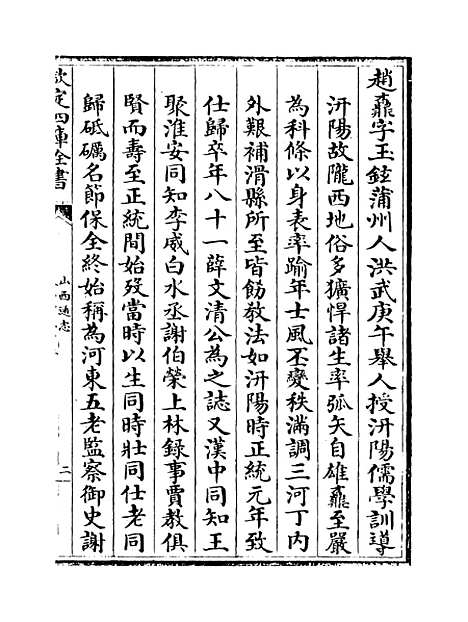 趙鼐字玉鉉蒲州人洪武庚午舉人授汧陽儒學訓導
汧陽故隴西地俗多獷悍諸生率弧矢自雄鼐至嚴
為科條以身表率踰年士風丕變秩滿調三河丁內
外艱補滑縣所至皆飭教法如汧陽時正統元年致
仕歸卒年八十一薛文清公為之誌又漢中同知王
聚淮安同知李威白水丞謝伯榮上林錄事賈教俱
賢而壽至正統間始歿當時以生同時壯同仕老同
歸砥礪名節保全終始稱為河東五老監察御史謝
欽定四庫全書
山西通志
二